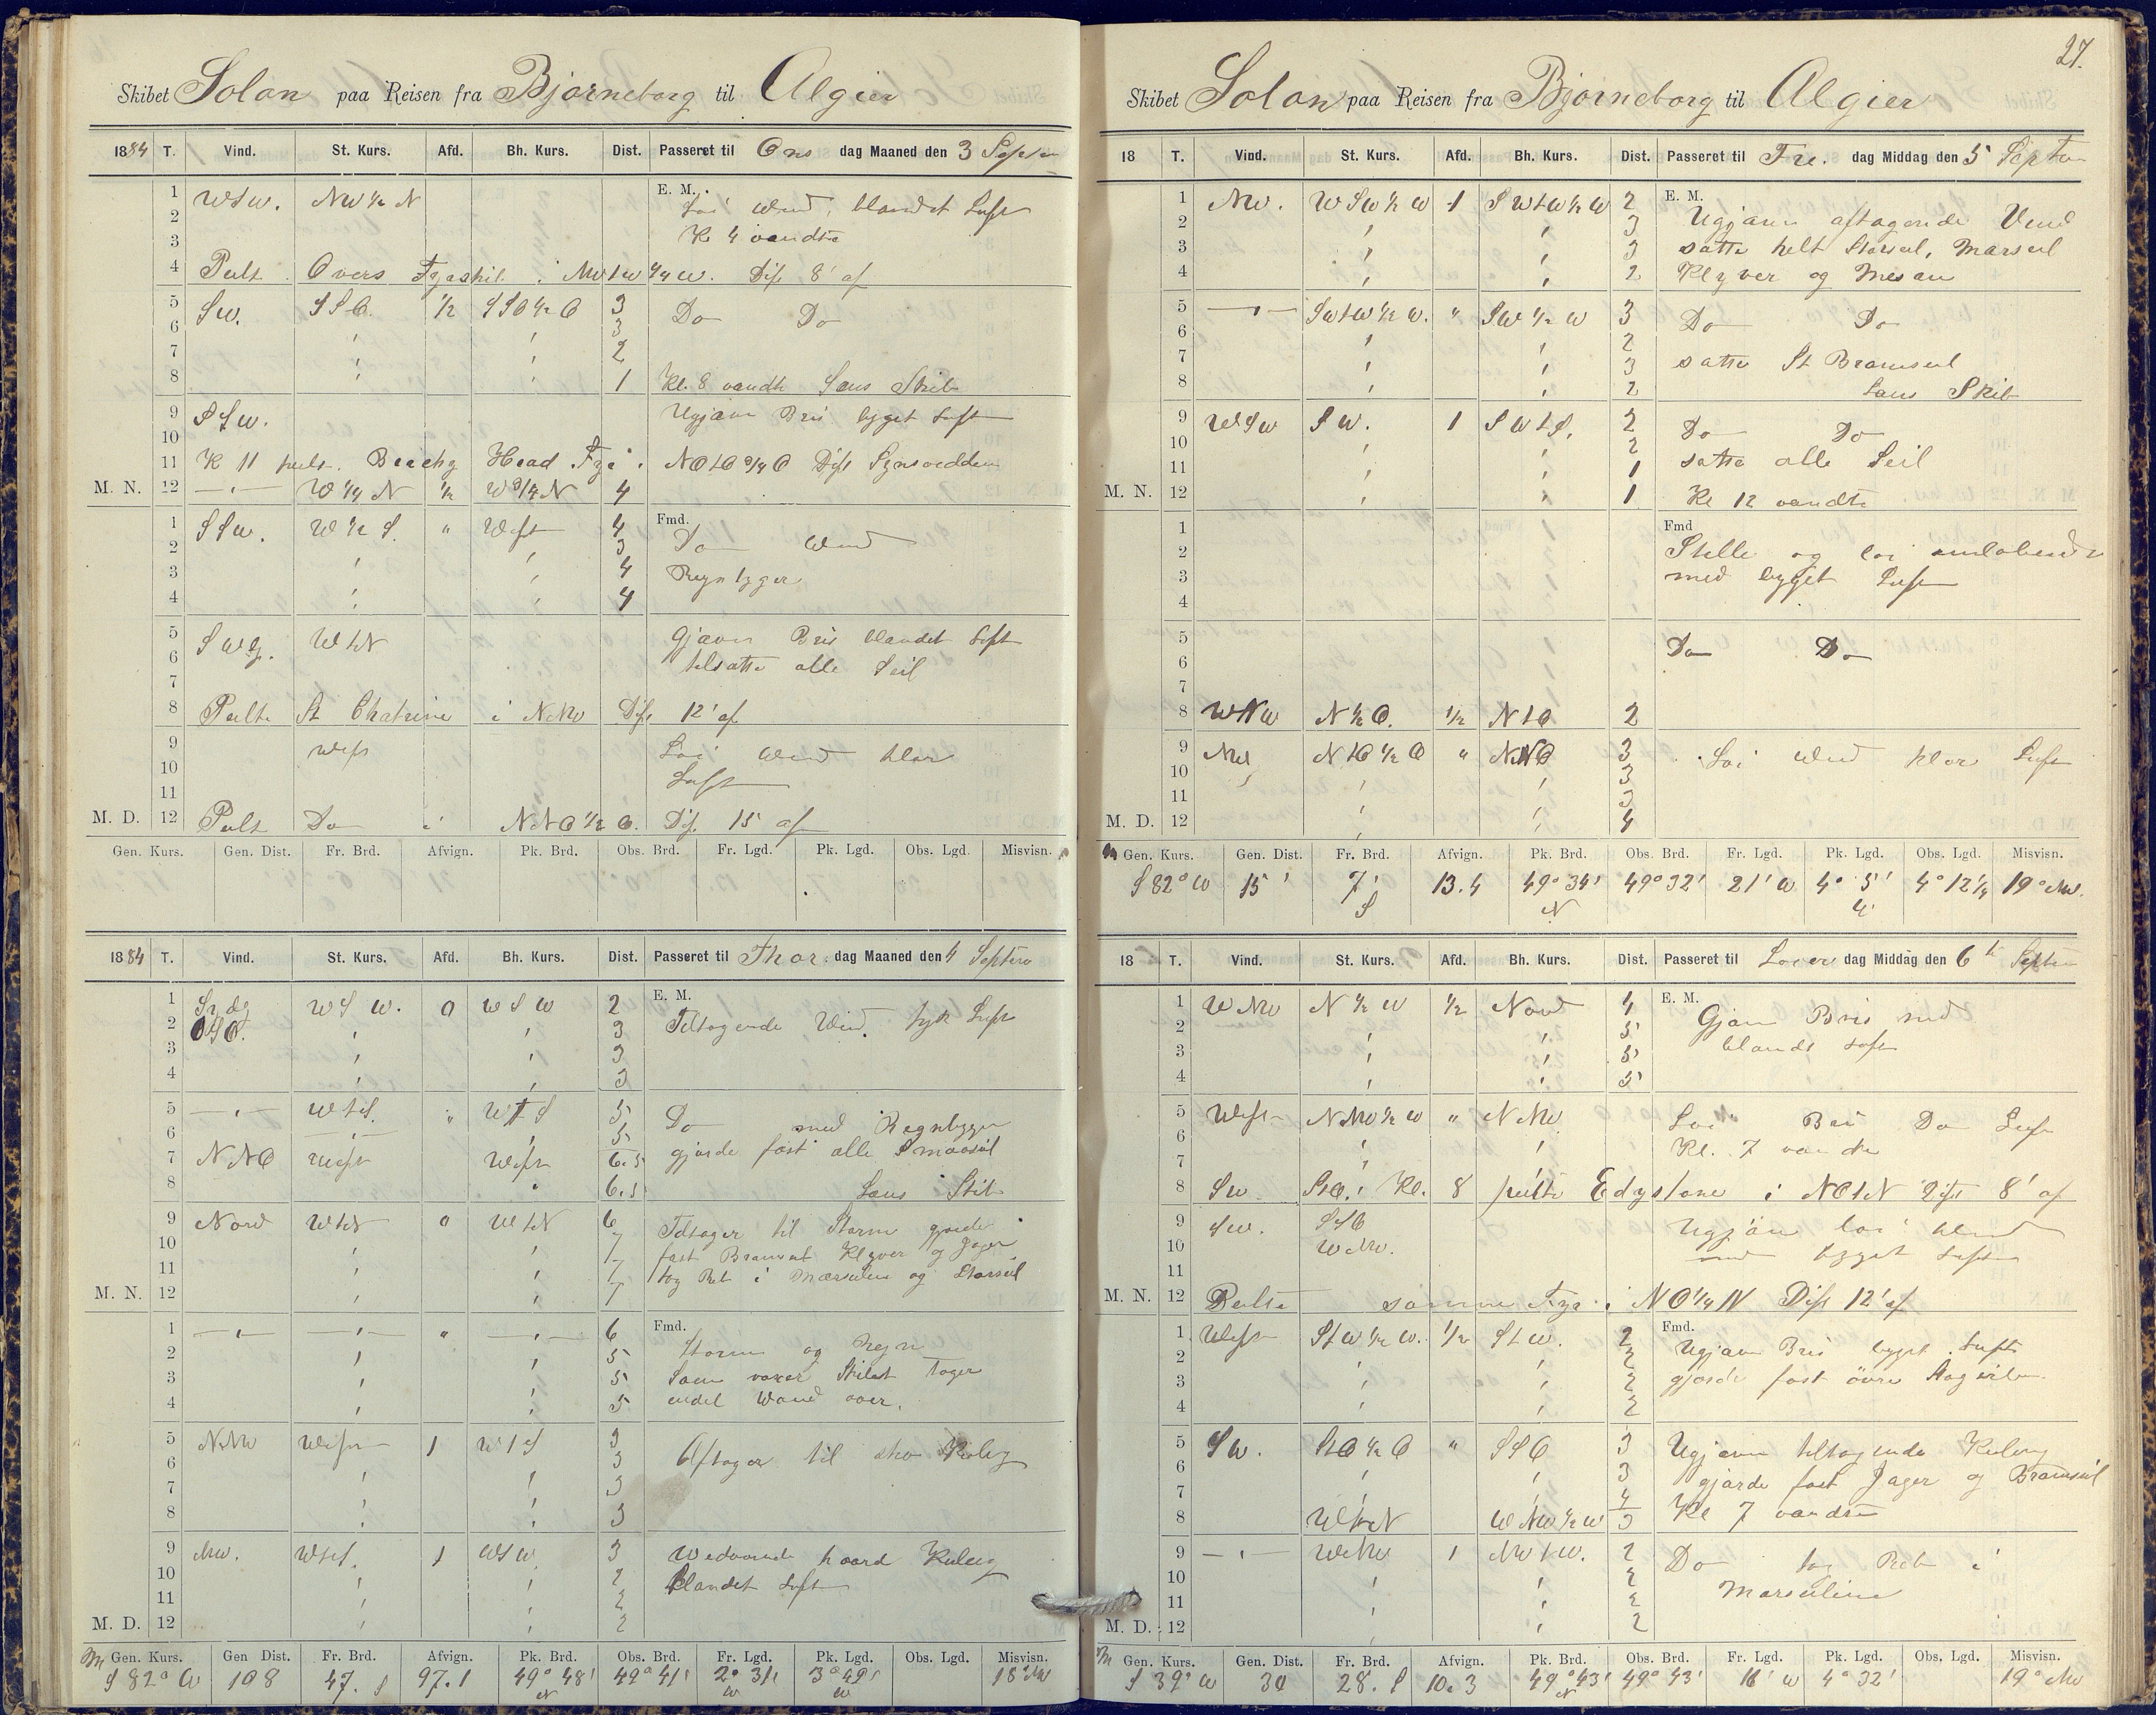 Skibet Solon paa Reisen fra Bjørneborg til Algier
1884 T. Vind. St. Kurs. Afd. Bh. Kurs. Dist. Passeret til Ons dag Maaned den 3 Septem
E. M.
1 WSW. NW ½ N Løi Wind, blandet Luft
2
3 Kl 4 vandte
4 Peilt Overs Fyrskib i NWtW ¼ W. Dist 8' af
5 SW. SSO. ½ SSO ½ O 3 Do Do
6 3
7 2
8 1 Kl. 8 vandt Lens Skib
9 SSW. Ugjævn Bris bygget Luft
10
11 Kl 11 peilt. Beechy Head Fyr i NOtO ¾ O Dist Synsvidden
M. N. 12 W ¼ N ½ W ¾ N 4
Fmd.
1 SSW. W ½ S. " West 4 Do Wind
2 3
3 4 Regn byger
4 4
5 WtN Gjævn Bris blandet Luft
6 tilsatte alle Seil
7
8 Peilt St Chatrine i NNW Dist 12' af
9 West Løi Wind klar
10 Luft
11
M. D. 12 Peilt Do i NNO ½ O. Dist 15 af
Gen. Kurs. Gen. Dist. Fr. Brd. Afvign. Pk. Brd. Obs. Brd. Fr. Lgd. Pk. Lgd. Obs. Lgd. Misvisn.
1884 T. Vind. St. Kurs. Afd. Bh. Kurs. Dist. Passeret til Thors dag Maaned den 4 Septem
E. M.
1 WSW. 0 WSW 2
2 OSO. 3 Tiltagende Wind. tyk Luft
3 3
4 3
5 WtS. " WtS 5 Do med Regnbyger
6 5 gjorde fast alle Smaaseil
7 NNO West West 6.5
8 6.5 Lens Skib
9 Nord WtN 0 WtN 6 Tiltager til Storm gjorde
10 7 fast Bramseil Klyver og Jager
11 7 tog Reb i Mærseilene og Storseil
M. N. 12 7
Fmd.
1 " 6 Storm og Regn
2 5
3 5 Søen voxer Skibet Tager
4 5 endel Wand over.
5 NNW West 1 WtS 3
6 3 Aftager til sko Kuling
7 3
8 3
9 NW. WtS. 1 WSW 3 Wedvarende haard Kuling
10 2 blandet Luft
11 2
M. D. 12 2
Gen. Kurs. Gen Dist. Fr. Brd. Afvign. Pk. Brd. Obs. Brd. Fr. Lgd. Pk. Lgd. Obs. Lgd. Misvisn.
S 82° W 108 47. S 97.1 49° 48' N 49° 41' 2° 31' W 3° 49' W 18° NW
27.
Skibet Solon paa Reisen fra Bjørneborg til Algier
18 T. Vind. St. Kurs. Afd. Bh. Kurs. Dist. Passeret til Fre. dag Middag den 5 Septem
E. M.
1 NW. WSW ½ W 1 SWtW ½ W 2
2 3 Ugjævn aftagende Vind
3 3 satte helt Storseil, Marseil
4 2 Klyver og Mesan
5 SWtW ½ W. " SW ½ W 3 Do Do
6 2
7 3 satte St Bramseil
8 2 Lens Skib
9 WSW SW. 1 SWtS. 2 Do Do
10 2
11 1 satte alle Seil
M. N. 12 1 Kl 12 vandte
Fmd
1
2 Stille og løi omløbende
3 med bygget Luft
4
5 Do Do
6
7
8 WNW N ½ O. ½ NtO 2
9 NW NtO ½ O " NNO 3 Løi Wind klar Luft
10 3
11 3
M. D. 12 4
Gen. Kurs. Gen. Dist. Fr. Brd. Afvign. Pk. Brd. Obs. Brd. Fr. Lgd. Pk. Lgd. Obs. Lgd. Misvisn.
S 82° W 15' 7' S 13.4 49° 34' N 49° 32' 21' W 4° 5' W 4° 12 ¼ 19° NW.
18 T. Vind. St. Kurs. Afd. Bh. Kurs. Dist. Passeret til Løver dag Middag den 6 Septem
E. M.
1 WNW N ½ W ½ Nord 4 Gjævn Bris med
2 5 blandt Luft
3 5
4 5
5 West NNW ½ W " NNW. Løi Bris Do Luft
6 Kl. 7 vandte
7
8 SW StO. Kl. 8 peilte Edystone i NOtN Dist 8' af
9 SW. SSO Ugjævn løi Wind
10 WNW. med bygget Luft
11
M. N. 12 Peilte samme Fyr i NO ¼ N Dist 12' af
Fmd.
1 West StW ½ W. ½ StW. 2 Ugjævn Bris bygget Luft
2 2
3 2 gjorde fast övre Stagseilen
4 2
5 SW. StO ½ O " SSO 3 Ugjævn tiltagende Kuling
6 3 gjorde fast Jager og Bramseil
7 4 Kl 7 vandte
8 WtN WNW ½ W 3
9 WNW 1 NWtW. 2 Do tog Reb i
10 2
11 2 Marseilene
M. D. 12 2
Gen. Kurs. Gen. Dist. Fr. Brd. Afvign. Pk. Brd. Obs. Brd. Fr. Lgd. Pk. Lgd. Obs. Lgd. Misvisn.
S 39° W 30 28. S 10.3 49° 43' N 49° 43' 16' W 4° 32' 19° NW